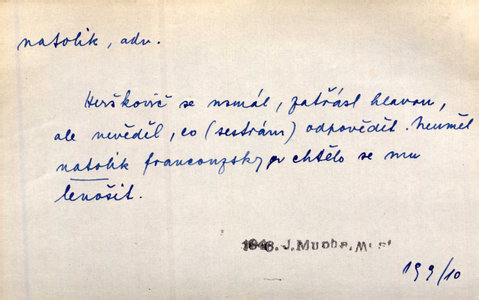 natolik, adv.
Herškovič se usmál, zatřásl hlavou,
ale nevěděl, co (sestrám) odpovědět. Neuměl
natolik francouzsky a chtělo se mu
lenošit.
1948. J. Mucha, M.
199/10